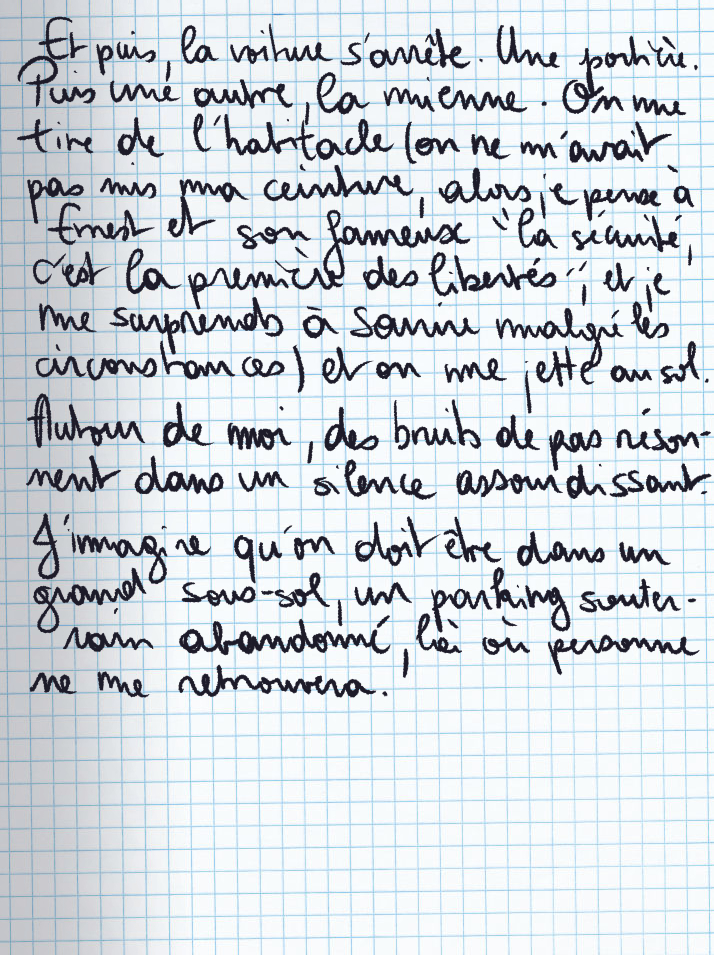 Et puis, la voiture s'arrête. Une portière.
Puis une autre, la mienne. On me
tire de l'habitacle (on ne m'avait
pas mis ma ceinture, alors je pense à
Ernest et son fameux "la sécurité,
c'est la première des libertés", et je
me surprends à sourire malgré les
circonstances) et on me jette au sol.
Autour de moi, des bruits de pas réson-
nent dans un silence assourdissant.
J'imagine qu'on doit être dans un
grand sous-sol, un parking souter-
rain abandonné, là où personne
ne me retrouvera.